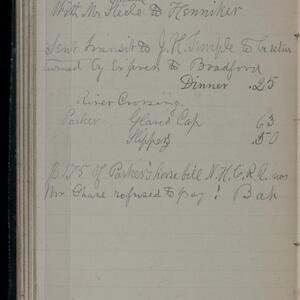 With Mr Steele to Henniker
Sent transit to J. H. Temple to be retur
turned by Express to Bradford
Dinner .25
River Crossing.
Parker Glazed Cap 63
Slippers 50
of Parker's horse bill N.H.C.R.R. was
Mr. Chase refused to pay! Bah